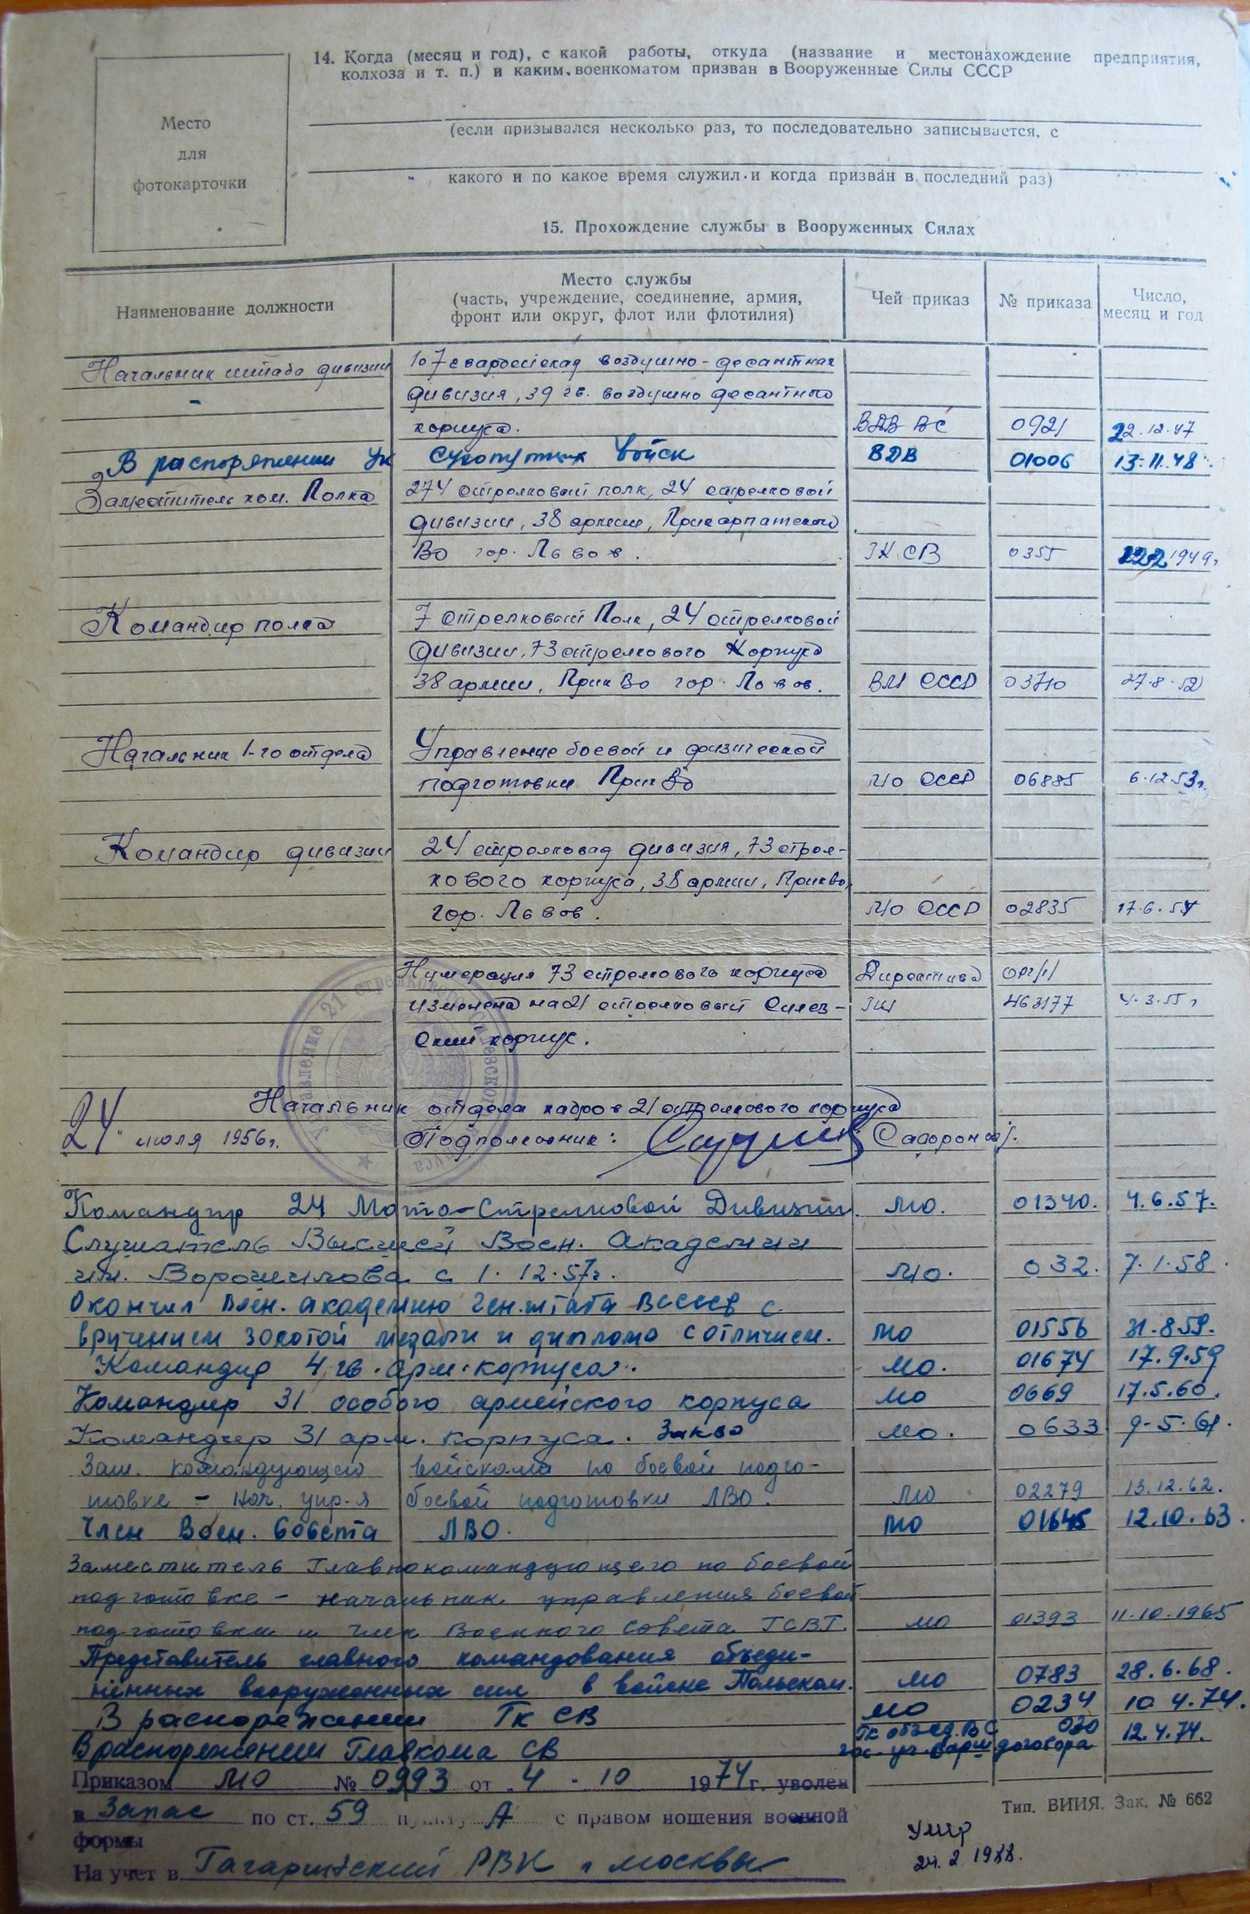 14. Когда (месяц и год), с какой работы, откуда (название и местонахождение предприятия,
колхоза и т. п.) и каким военкоматом призван в Вооруженные Силы СССР
Место
для
фотокарточки
(если призывался несколько раз, то последовательно записывается, с
какого и по какое время служил и когда призван в последний раз)
15. Прохождение службы в Вооруженных Силах
Наименование должности
Место службы
(часть, учреждение, соединение, армия,
фронт или округ, флот или флотилия)
Чей приказ
№ приказа
Число,
месяц и год
Начальник штаба дивизии 107 гвардейская воздушно-десантная
дивизия, 39 гв. воздушно десантного
корпуса. ВДВ ВС 0921 22.12.47
В распоряжении Ук Сухопутных Войск ВДВ 01006 13.11.48
Заместитель ком. Полка 274 стрелковый полк, 24 стрелковой
дивизии, 38 армии, Прикарпатского
Во гор. Львов. ГК СВ 0355 1949г.
Командир полка 7 стрелковый Полк, 24 стрелковой
дивизии, 73 стрелкового корпуса
38 армии, ПрикВо гор. Львов. ВМ СССР 03710 27.8.52
Начальник 1-го отдела Управление боевой и физической
подготовки ПрикВо МО СССР 06885 6.12.53г.
Командир дивизии 24 стрелковая дивизия, 73 стрел-
кового корпуса, 38 армии, ПрикВо,
гор. Львов. МО СССР 02835 17.6.54
Нумерация 73 стрелкового корпуса Директива орг/1/
изменена на 21 стрелковый ГШ 463177 4.3.55г
корпус.
Начальник отдела кадров 21 стрелкового корпуса
24 июля 1956г. Подполковник:
Командир 24 Мото-Стрелковой Дивизии. МО. 01340. 4.6.57.
Слушатель Высшей Воен. Академии
им. Ворошилова с 1.12.57г. МО. 032. 7.1.58.
Окончил Воен. академию Ген.штаба ВС СССР с
вручением золотой медали и диплома с отличием. МО 01556 31.8.59.
Командир 4 гв. арм. корпуса. МО. 01674 17.9.59
Командир 31 особого армейского корпуса МО 0669 17.5.60.
Командир 31 арм. корпуса. ЗакВо МО. 0633 9.5.61.
Зам. командующего войсками по боевой подго-
товке - нач. упр-я боевой подготовки ЛВО. МО 02279 13.12.62.
Член Воен. Совета ЛВО. МО 01645 12.10.63.
Заместитель Главнокомандующего по боевой
подготовке - начальник управления боевой
подготовки и член Военного Совета ГСВГ. МО 01393 11.10.1965
Представитель главного командования объеди-
ненных вооруженных сил в войске Польском. МО 0783 28.6.68.
В распоряжении ГК СВ МО 0234 10.4.74.
В распоряжении Главкома СВ Гк объед. ВС 020 12.4.74.
гос. уч. Варш договора
Приказом МО № 0993 от 4.10 1974г. уволен
в Запас по ст. 59 пункту А с правом ношения военной
формы
На учет в Гагаринский РВК г. Москвы
Тип. ВИИЯ. Зак. № 662
умер
24.2.1988.